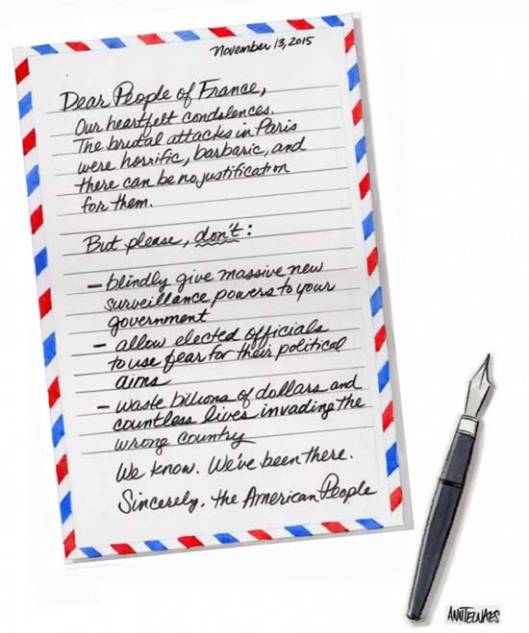 November 13, 2015
Dear People of France,
Our heartfelt condolences.
The brutal attacks in Paris
were horrific, barbaric, and
there can be no justification
for them.
But please, don't:
- blindly give massive new
surveillance powers to your
government
- allow elected officials
to use fear for their political
aims
- waste billions of dollars and
countless lives invading the
wrong country
We know. We've been there.
Sincerely, the American People
ANNTELNAES